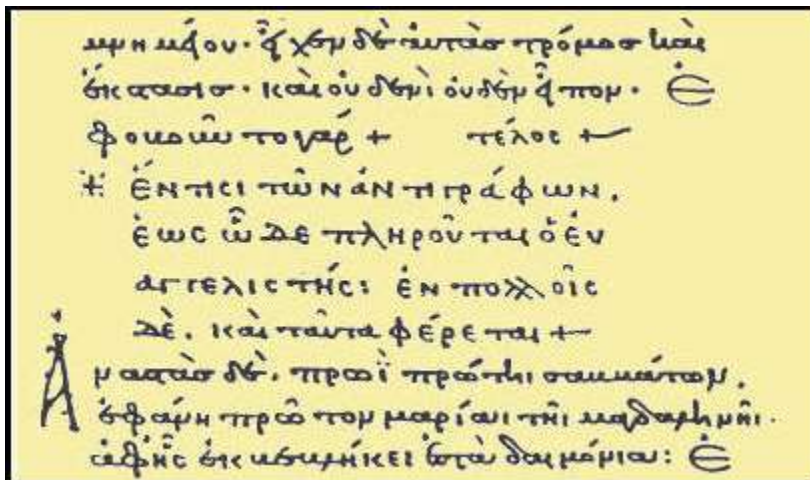 μνημείου· εἶχεν δὲ αὐτὰσ τρόμοσ καὶ
ἔκστασισ· καὶ οὐδενὶ οὐδὲν εἶπον· ἐ
φοβοῦντο γάρ + τέλος +
⁜ ἔν τισι τῶν ἀντιγράφων,
ἕως ὧδε πληροῦται ὁ ἐυ
αγγελιστής: ἐν πολλοῖς
δὲ, καὶ ταῦτα φέρεται +
Ἀναστὰσ δὲ, πρωῒ πρώτηι σαββάτων,
ἐφάνη πρῶτον μαρίαι τῆι μαγδαληνῆι·
ἀφ ἧς ἐκβεβλήκει ἑπτὰ δαιμόνια: ἐ